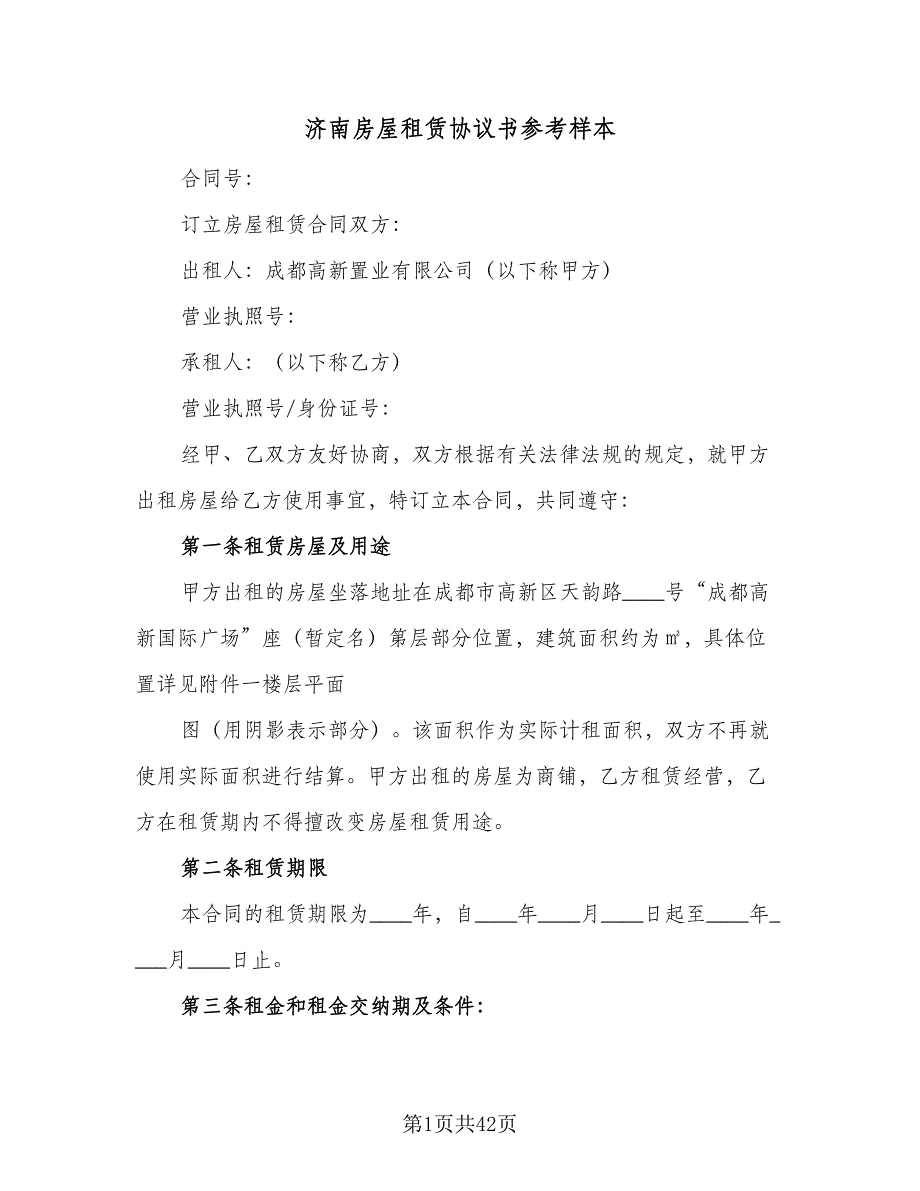 济南房屋租赁协议书参考样本
合同号：
订立房屋租赁合同双方：
出租人：成都高新置业有限公司（以下称甲方）
营业执照号：
承租人：（以下称乙方）
营业执照号/身份证号：
经甲、乙双方友好协商，双方根据有关法律法规的规定，就甲方
出租房屋给乙方使用事宜，特订立本合同，共同遵守：
第一条租赁房屋及用途
甲方出租的房屋坐落地址在成都市高新区天韵路____号“成都高
新国际广场”座（暂定名）第层部分位置，建筑面积约为㎡，具体位
置详见附件一楼层平面
图（用阴影表示部分）。该面积作为实际计租面积，双方不再就
使用实际面积进行结算。甲方出租的房屋为商铺，乙方租赁经营，乙
方在租赁期内不得擅改变房屋租赁用途。
第二条租赁期限
本合同的租赁期限为____年，自____年____月____日起至____年_
___月____日止。
第三条租金和租金交纳期及条件：
第1页共42页